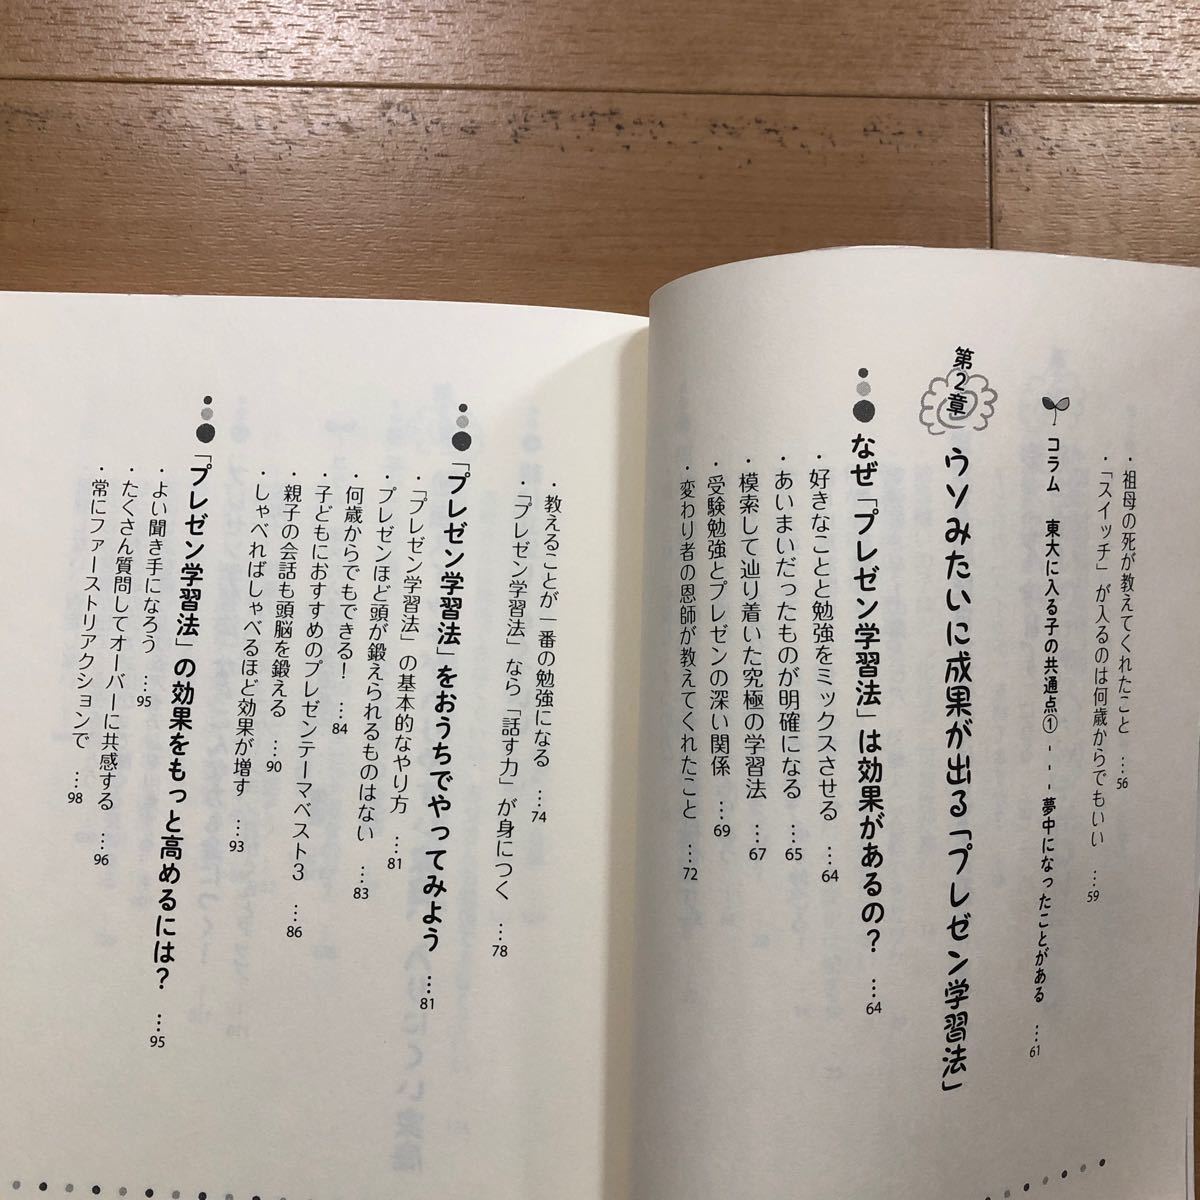 ・祖母の死が教えてくれたこと …56
・「スイッチ」が入るのは何歳からでもいい …59
コラム 東大に入る子の共通点① --- 夢中になったことがある …61
第2章 ウソみたいに成果が出る「プレゼン学習法」
なぜ「プレゼン学習法」は効果があるの？ …64
・好きなことと勉強をミックスさせる …64
・あいまいだったものが明確になる …65
・模索して辿り着いた究極の学習法 …67
・受験勉強とプレゼンの深い関係 …69
・変わり者の恩師が教えてくれたこと …72
・教えることが一番の勉強になる …74
・「プレゼン学習法」なら「話す力」が身につく …78
「プレゼン学習法」をおうちでやってみよう …81
・「プレゼン学習法」の基本的なやり方 …81
・プレゼンほど頭が鍛えられるものはない …83
・何歳からでもできる！ …84
・子どもにおすすめのプレゼンテーマベスト3 …86
・親子の会話も頭脳を鍛える …90
・しゃべればしゃべるほど効果が増す …93
「プレゼン学習法」の効果をもっと高めるには？ …95
・よい聞き手になろう …95
・たくさん質問してオーバーに共感する …96
・常にファーストリアクションで …98